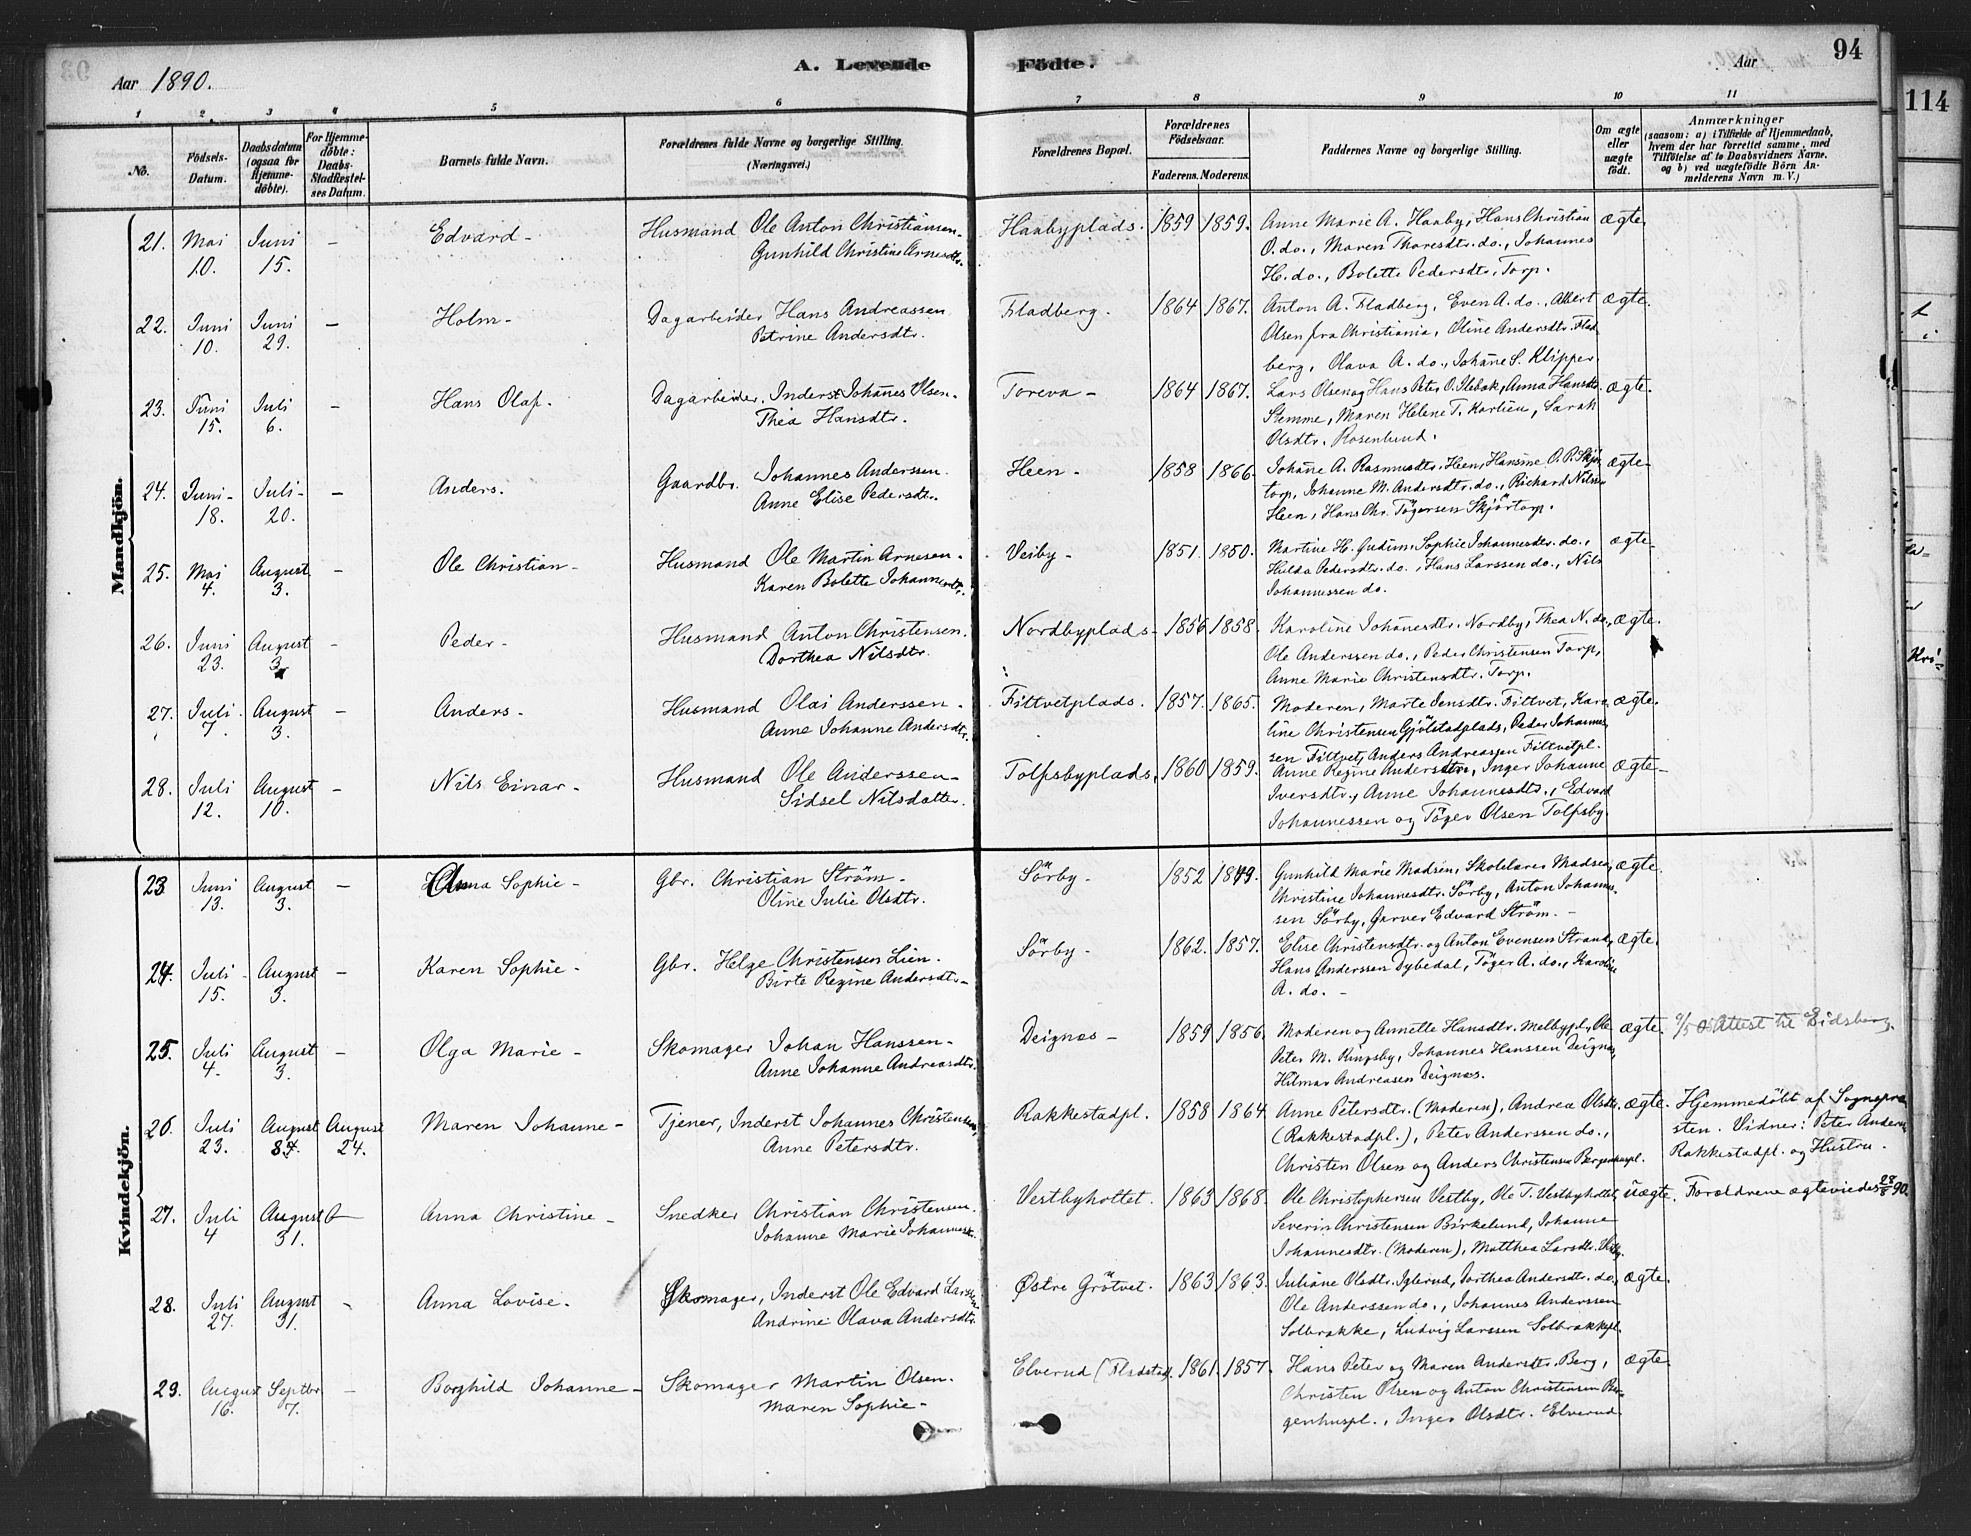 Aar 1890.
A. Levende
Födte.
Aar
94
114
1 2 3 4 5 6 7 8 9 10 11
No.
Födsels-
Datum.
Daabsdatum
(ogsaa for
Hjemme-
döbte).
For Hjemme-
döbte:
Daabs-
Stadfæstel-
ses Datum.
Barnets fulde Navn.
Forældrenes fulde Navne og borgerlige Stilling.
(Næringsvei.)
Forældrenes Bopæl.
Forældrenes
Födselsaar.
Faderens. Moderens.
Faddernes Navne og borgerlige Stilling.
Om ægte
eller
uægte
födt.
Anmærkninger
(saasom: a) i Tilfælde af Hjemmedaab,
hvem der har forrettet samme, med
Tilföielse af to Daabsvidners Navne.
og b) ved uægtefödte Börn An-
melderens Navn m. V.)
Mandkjön.
21. Mai Juni - Edvard - Husmand Ole Anton Christiansen - Haabyplads. 1859 1859. Anne Marie A. Haaby, Hans Christian ægte.
10. 15. Gunhild Christine Arnesdtr. O. do., Maren Thoresdtr. do., Johannes
H. do., Bolette Pedersdtr. Torp.
22. Juni Juni - Holm - Dagarbeider Hans Andreassen Fladberg. 1864 1867. Anton A. Fladberg, Even A. do., Albert ægte.
10. 29. Petrine Andersdtr. Olsen fra Christiania, Oline Andersdtr. Flad
berg, Olava A. do., Johane S. Klipper.
23. Juni Juli - Hans Olaf. Dagarbeider, Inderst Johanes Olsen. Toreva - 1864 1867. Lars Olsen og Hans Peter O. Ilebak, Anna Hansdtr. ægte.
15. 6. Thea Hansdtr. Stemme, Maren Helene T. Karlien, Sarah
Olsdtr. Rosenlund.
24. Juni - Juli - - Anders. Gaardbr. Johannes Anderssen. Heen - 1858 1866. Johane A. Rasmusdtr. Heen, Hansine O. P. Skjör ægte-
18. 20. Anne Elise Pedersdtr. torp, Johanne M. Andersdtr. do., Richard Nilsen
Heen, Hans Chr. Tögersen Skjörtorp.
25. Mai August - Ole Christian - Husmand Ole Martin Arnesen - Veiby - 1851. 1850. Martine H. Gudim, Sophie Johannesdtr. do., ægte-
4. 3. Karen Bolette Johannesdtr. Hulda Pedersdtr. do., Hans Larssen do., Nils
Johannessen do.
26. Juni August - Peder - Husmand Anton Christensen. Nordbyplads - 1856 1858. Karoline Johanesdtr. Nordby, Thea N. do., ægte.
23. 3. Dorthea Nilsdtr. Ole Anderssen do., Peder Christensen Torp,
Anne Marie Christensdtr. Torp.
27. Juli. August - Anders - Husmand Olai Anderssen - Fittvetplads. 1857. 1865. Moderen, Marte Jensdtr. Fittvet, Karo ægte.
7. 3. Anne Johanne Andersdtr. line Christensen Gjölstadplads, Peder Johannes
sen Fittvet, Anders Andreassen Fittvetpl.
28. Juli August - Nils Einar - Husmand Ole Anderssen - Tolfsbyplads. 1860 1859. Anne Regine Andersdtr., Inger Johanne ægte-
12. 10. Sidsel Nilsdatter. Iversdtr., Anne Johannesdtr., Edvard
Johannessen og Töger Olsen Tolfsby.
Kvindekjön.
23 Juni August - Anna Sophie - Gbr. Christian Ström - Sörby - 1852 1849. Gunhild Marie Madsen, Skolelærer Madsen, ægte.
13. 3. Oline Julie Olsdtr. Christine Johannesdtr. Sörby, Anton Johannes
sen Sörby, Garver Edvard Ström. -
24. Juli - August - Karen Sophie - Gbr. Helge Christensen Lien. Sörby - 1862. 1857. Elise Christensdtr. og Anton Evensen Strand, ægte.
15. 3. Birte Regine Andersdtr. - Hans Anderssen Dybedal, Töger A. do., Karoline
A. do. -
25. Juli August - Olga Marie - Skomager Johan Hanssen - Deignæs - 1859 1856. Moderen og Annette Hansdtr. Melbypl., Ole ægte. Attest til Eidsberg.
4. 3. Anne Johanne Andreasdtr. Peter M. Ringsby, Johannes Hanssen Deignæs,
Hilmar Andreasen Deignæs.
26. Juli August August Maren Johanne - Tjener, Inderst Johannes Christensen, Rakkestadpl. 1858 1864. Anne Petersdtr. (Moderen), Andrea Olsdtr. ægte. Hjemmedöbt af Sognepræ
23. 24. Anne Petersdtr. (Rakkestadpl.), Peter Anderssen do., sten. Vidner: Peter Anders.
Christen Olsen og Anders Christensen Bergenhuspl. Rakkestadpl. og Hustru.
27. Juli August Anna Christine - Snedker Christian Christensen. Vestbyhottet. 1863 1868. Ole Christophersen Vestby, Ole T. Vestbyhottet, uægte. Forældrene ægteviedes 28/8 90.
4 31. Johanne Marie Johannesdtr. Severin Christensen Birkelund, Johanne
Johannesdtr. (Moderen), Matthea Larsdtr.
28. Juli August - Anna Lovise. Skomager, Inderst Ole Edvard Larssen Østre Grötvet. 1863 1863. Juliane Olsdtr. Iglerud, Dorthea Andersdtr. do., ægte.
27. 31. Andrine Olava Andersdtr. Ole Anderssen do., Johannes Anderssen
Solbrække, Ludvig Larssen Solbrækkpl.
29. August Septbr. - Borghild Johanne - Skomager Martin Olsen. Elverud (Fladstad). 1861. 1857. Hans Peter og Maren Andersdtr. Berg, ægte.
16. 7. Maren Sophie - Christen Olsen og Anton Christensen Ber-
genhuspl., Inger Olsdtr. Elverud.